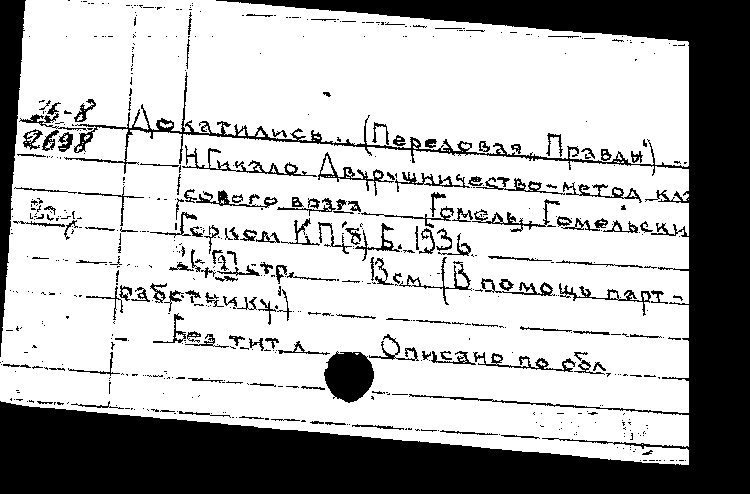 36-8
2698
Докатились... (Передовая „Правды"). —
Н. Гикало. Двурушничество-метод клас
сового врага Гомель, Гомельски
Горком КП(б)Б. 1936
26, [2] стр. 8 см (В помощь парт-
работнику.")
Без тит. л. Описано по обл.